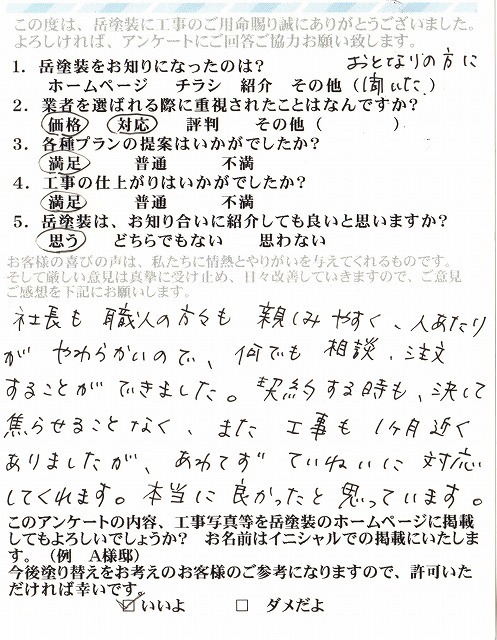 この度は、岳塗装に工事のご用命賜り誠にありがとうございました。
よろしければ、アンケートにご回答ご協力お願い致します。
1．岳塗装をお知りになったのは？ おとなりの方に
ホームページ チラシ 紹介 その他（聞いた）
2．業者を選ばれる際に重視されたことはなんですか？
価格 対応 評判 その他（ ）
3．各種プランの提案はいかがでしたか？
満足 普通 不満
4．工事の仕上がりはいかがでしたか？
満足 普通 不満
5．岳塗装は、お知り合いに紹介しても良いと思いますか？
思う どちらでもない 思わない
お客様の喜びの声は、私たちに情熱とやりがいを与えてくれるものです。
そして厳しい意見は真摯に受け止め、日々改善していきますので、ご意見
ご感想を下記にお願いします。
社長も 職人の方々も 親しみやすく、人あたり
が やわらかいので、何でも 相談、注文
することが できました。契約する時も、決して
焦らせることなく、また 工事も 1ヶ月近く
ありましたが、あわてず ていねいに 対応
してくれます。本当に 良かったと 思っています。
このアンケートの内容、工事写真等を岳塗装のホームページに掲載
してもよろしいでしょうか？ お名前はイニシャルでの掲載にいたしま
す。（例 A様邸）
今後塗り替えをお考えのお客様のご参考になりますので、許可いた
だければ幸いです。
☑ いいよ □ ダメだよ